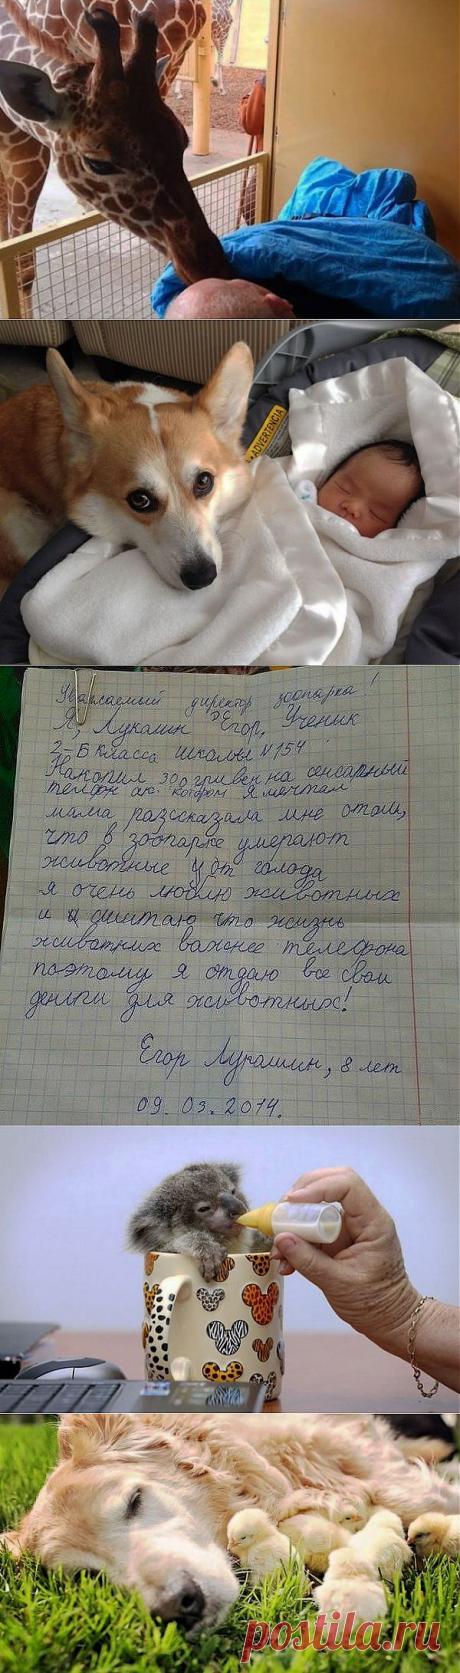 ADVERTENCIA
Уважаемый директор зоопарка!
Я, Лукашин Егор, Ученик
2-Б класса школы N 154
Накопил 300 гривен на сенсарный
телефон о котором я мечтал
мама разссказала мне отом,
что в зоопарке умерают
животные от голода
я очень люблю животных
и считаю что жизнь
животних важнее телефона
поэтому я отдаю все свои
деньги для животных!
Егор Лукашин, 8 лет
09. 03. 2014.
postila.ru